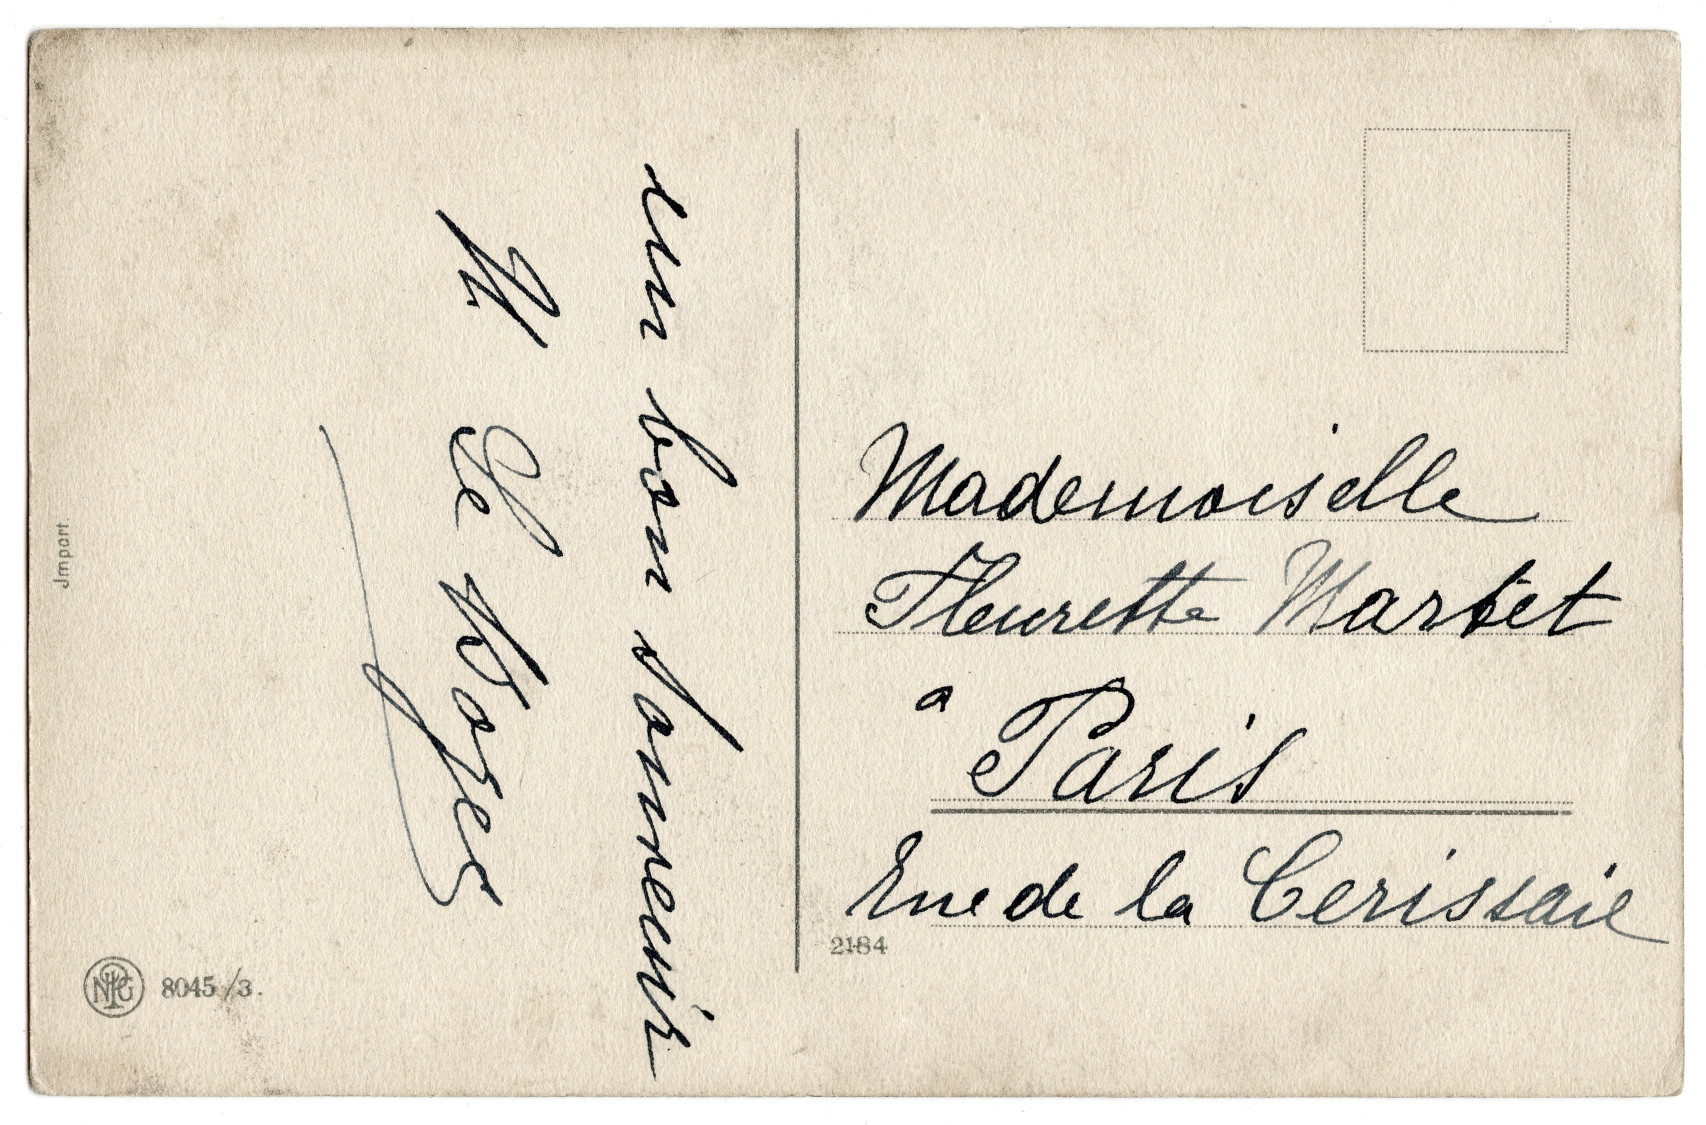 un bon souvenir
H Le
Jmport.
NPG 8045/3.
Mademoiselle
Fleurette Martet
a Paris
Rue de la Cerissaie
2184